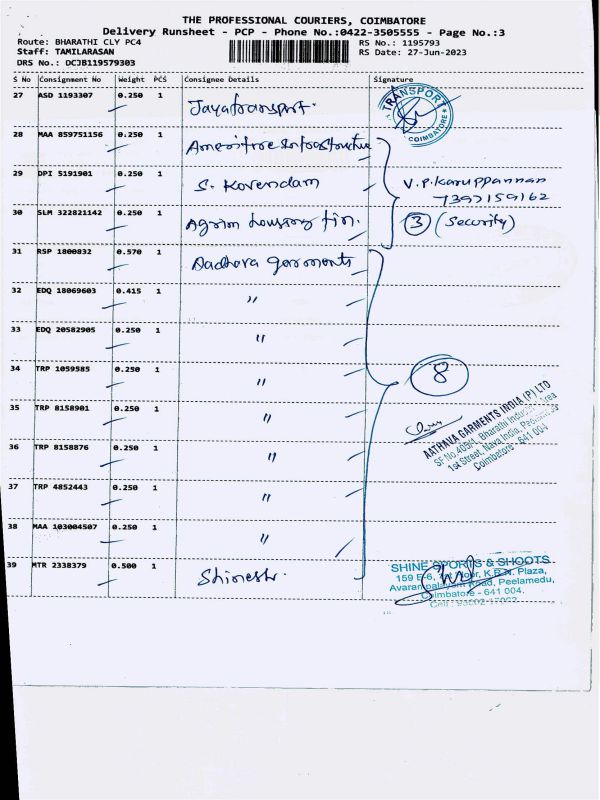 THE PROFESSIONAL COURIERS, COIMBATORE
Delivery Runsheet - PCP - Phone No.:0422-3505555 - Page No.:3
Route: BHARATHI CLY PC4
RS No.: 1195793
Staff: TAMILARASAN
RS Date: 27-Jun-2023
DRS No.: DCJB119579303
S No Consignment No Weight PCS Consignee Details Signature
27 ASD 1193307 0.250 1 Jayatransport. TRANSPORT COIMBATORE
28 MAA 859751156 0.250 1 Ameritree Infrastructure
29 DPI 5191901 0.250 1 S. Kovendam V.P.Karuppannan
7397159162
30 SLM 322821142 0.250 1 Agrim housing fin. 3 (Security)
31 RSP 1800832 0.570 1 Aadhava garments
32 EDQ 18069603 0.415 1 "
33 EDQ 20582905 0.250 1 "
34 TRP 1059585 0.250 1 " 8
35 TRP 8158901 0.250 1 "
AATHAVA GARMENTS INDIA (P) LTD
SF No.405/4, Bharathi Industrial Area
1st Street, Nava India, Peelamedu
Coimbatore - 641 004
36 TRP 8158876 0.250 1 "
37 TRP 4852443 0.250 1 "
38 MAA 103004507 0.250 1 "
39 MTR 2338379 0.500 1
SHINE SPORTS & SHOOTS
159 E-6, Floor, K.B.N. Plaza,
Road, Peelamedu,
Coimbatore - 641 004.
Cell :